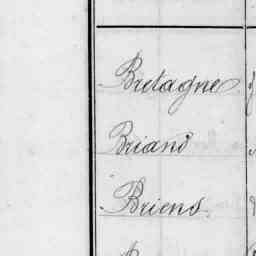 Bretagne
Briand
Briens